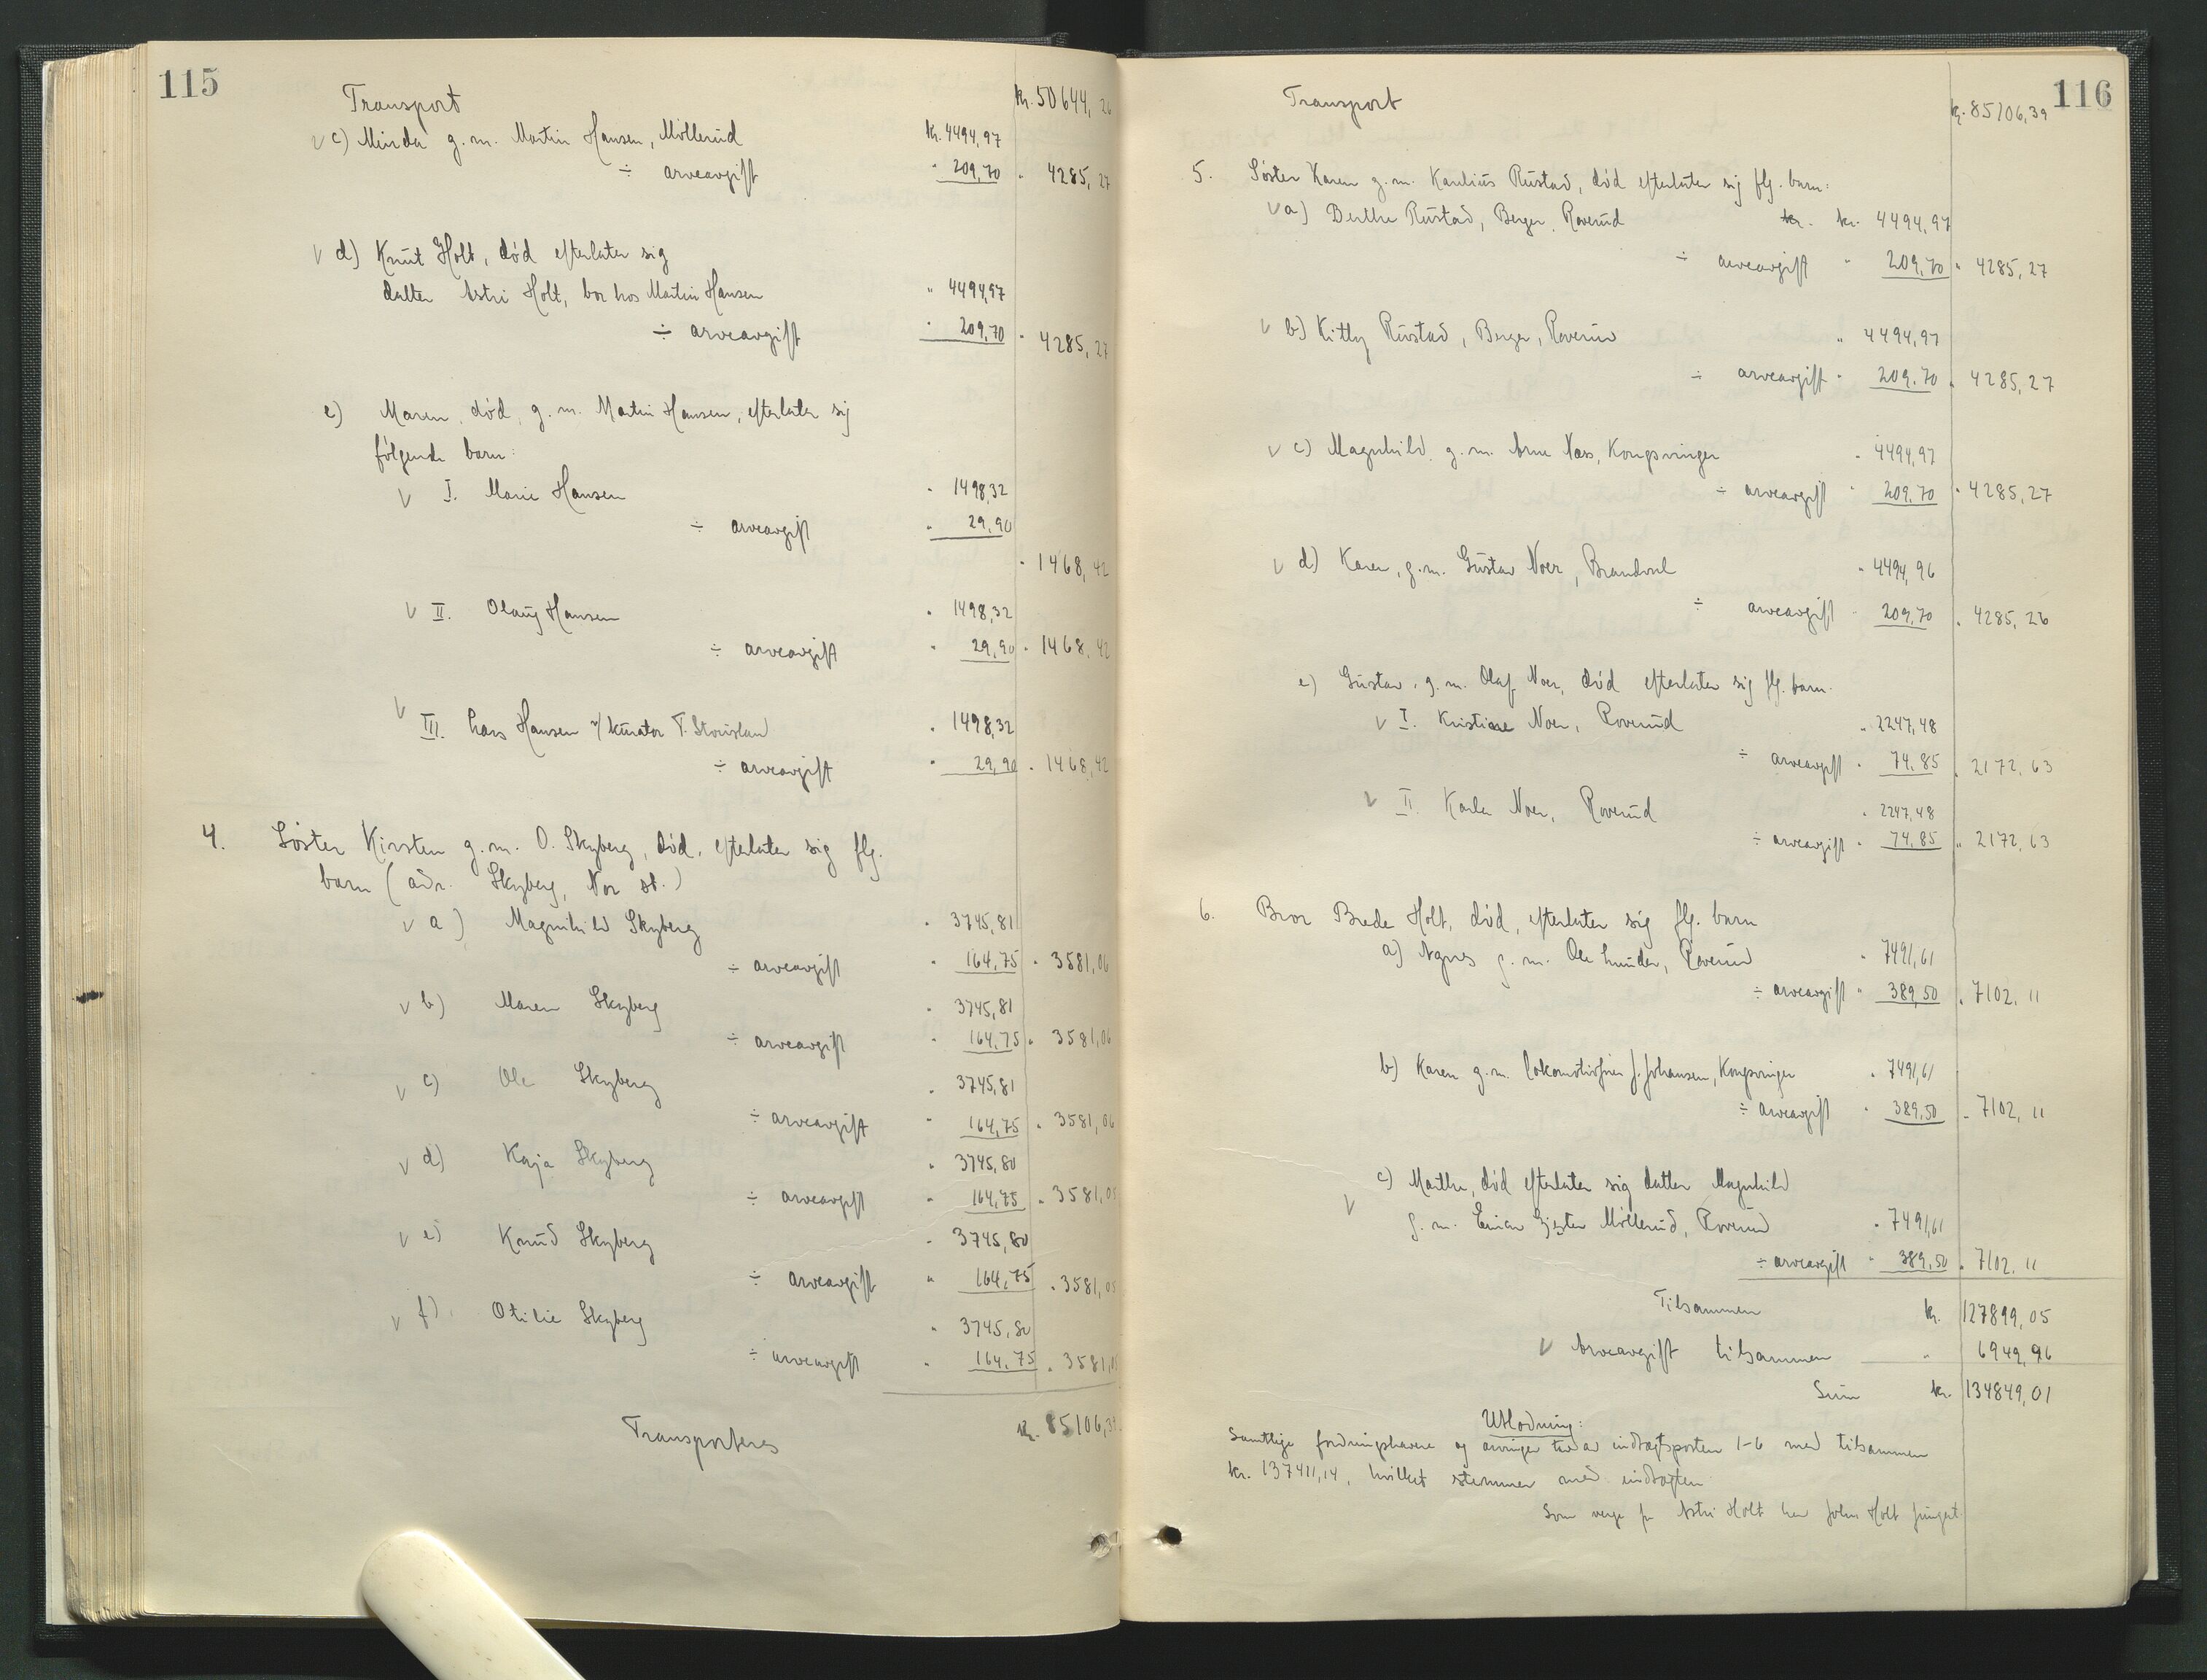 115
Transport kr. 50644, 26
√ c) Minda g. m. Martin Hansen, Møllerud kr. 4494,97
÷ arveavgift " 209,70 " 4285, 27
√ d) Knut Holt, død efterlater sig
datter Astri Holt, bor hos Martin Hansen " 4494,97
÷ arveavgift " 209,70 " 4285, 27
e) Maren, død, g. m. Martin Hansen, efterlater sig
følgende barn:
√ I. Marie Hansen " 1498,32
÷ arveavgift " 29,90
" 1468, 42
√ II. Olaug Hansen " 1498,32
÷ arveavgift " 29,90 " 1468, 42
√ III. Lars Hansen v/ kurator T. " 1498,32
÷ arveavgift " 29,90 " 1468,42
4. Søster Kirsten g. m. O. Skyberg, død, efterlater sig flg.
barn (adr. Skyberg, Nor st.)
√ a) Magnhild Skyberg " 3745,81
÷ arveavgift " 164,75 " 3581,06
√ b) Maren Skyberg " 3745,81
÷ arveavgift " 164,75 " 3581,06
√ c) Ole Skyberg " 3745,81
÷ arveavgift " 164,75 " 3581,06
√ d) Kaja Skyberg " 3745,80
÷ arveavgift " 164,75 " 3581,05
√ e) Knud Skyberg " 3745,80
÷ arveavgift " 164,75 " 3581,05
√ f) Otilie Skyberg " 3745,80
÷ arveavgift " 164,75 " 3581,05
Transporteres kr. 85106,39
116
Transport kr. 85106,39
5. Søster Karen g. m. Karelius Rustad, død efterlater sig flg. barn:
√ a) Berthe Rustad, Berger, Roverud kr. kr. 4494,97
÷ arveavgift " 209,70 " 4285,27
√ b) Kitty Rustad, Berger, Roverud " 4494,97
÷ arveavgift " 209,70 " 4285,27
√ c) Magnhild, g. m. Arne Næs, Kongsvinger " 4494,97
÷ arveavgift " 209,70 " 4285,27
√ d) Karen, g. m. Gustav Noer, Brandval " 4494,96
÷ arveavgift " 209,70 " 4285,26
e) Gustav, g. m. Olaf Noer, død efterlater sig flg. barn.
√ I. Kristiane Noer, Roverud " 2247,48
÷ arveavgift " 74,85 " 2172,63
√ II Karla Noer, Roverud " 2247,48
÷ arveavgift " 74,85 " 2172,63
6. Bror Brede Holt, død, efterlater sig flg. barn
a) Agnes g. m. Ole Lunder, Roverud " 7491,61
÷ arveavgift " 389,50 " 7102,11
b) Karen g. m. lokomotivfører J. Johansen, Kongsvinger " 7491,61
÷ arveavgift " 389,50 " 7102,11
√ c) Marthe, død efterlater sig datter Magnhild
g. m. Einar Møllerud, Roverud " 7491,61
÷ arveavgift " 389,50 " 7102,11
Tilsammen kr. 127899,05
√ Arveavgift tilsammen " 6949,96
Sum kr. 134849,01
Utlodning:
Samtlige fordringshavere og arvinger av indtægtsposten 1-6 med tilsammen
kr. 137411,14, hvilket stemmer med indtægten
Som verge for Astri Holt har Johs Holt fungert